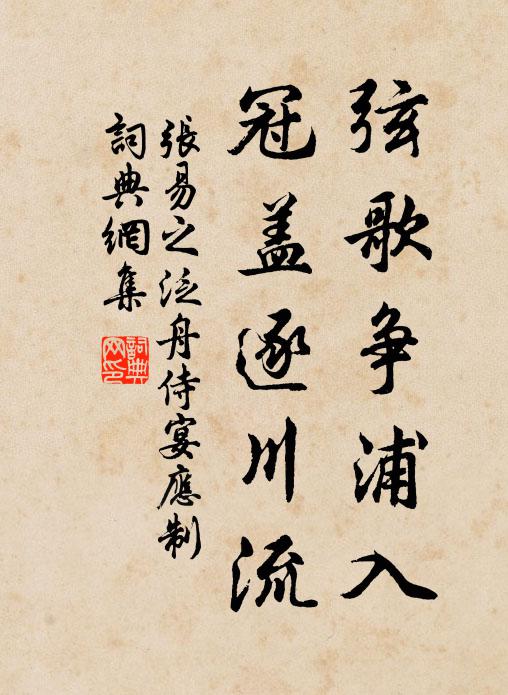 弦歌争浦入
冠盖逐川流
張易之泛舟侍宴應制
詞典網集
詞典网印